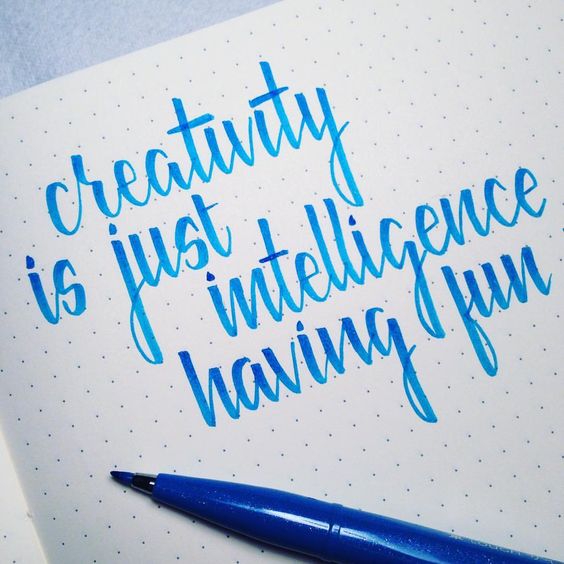 creativity
is just intelligence
having fun